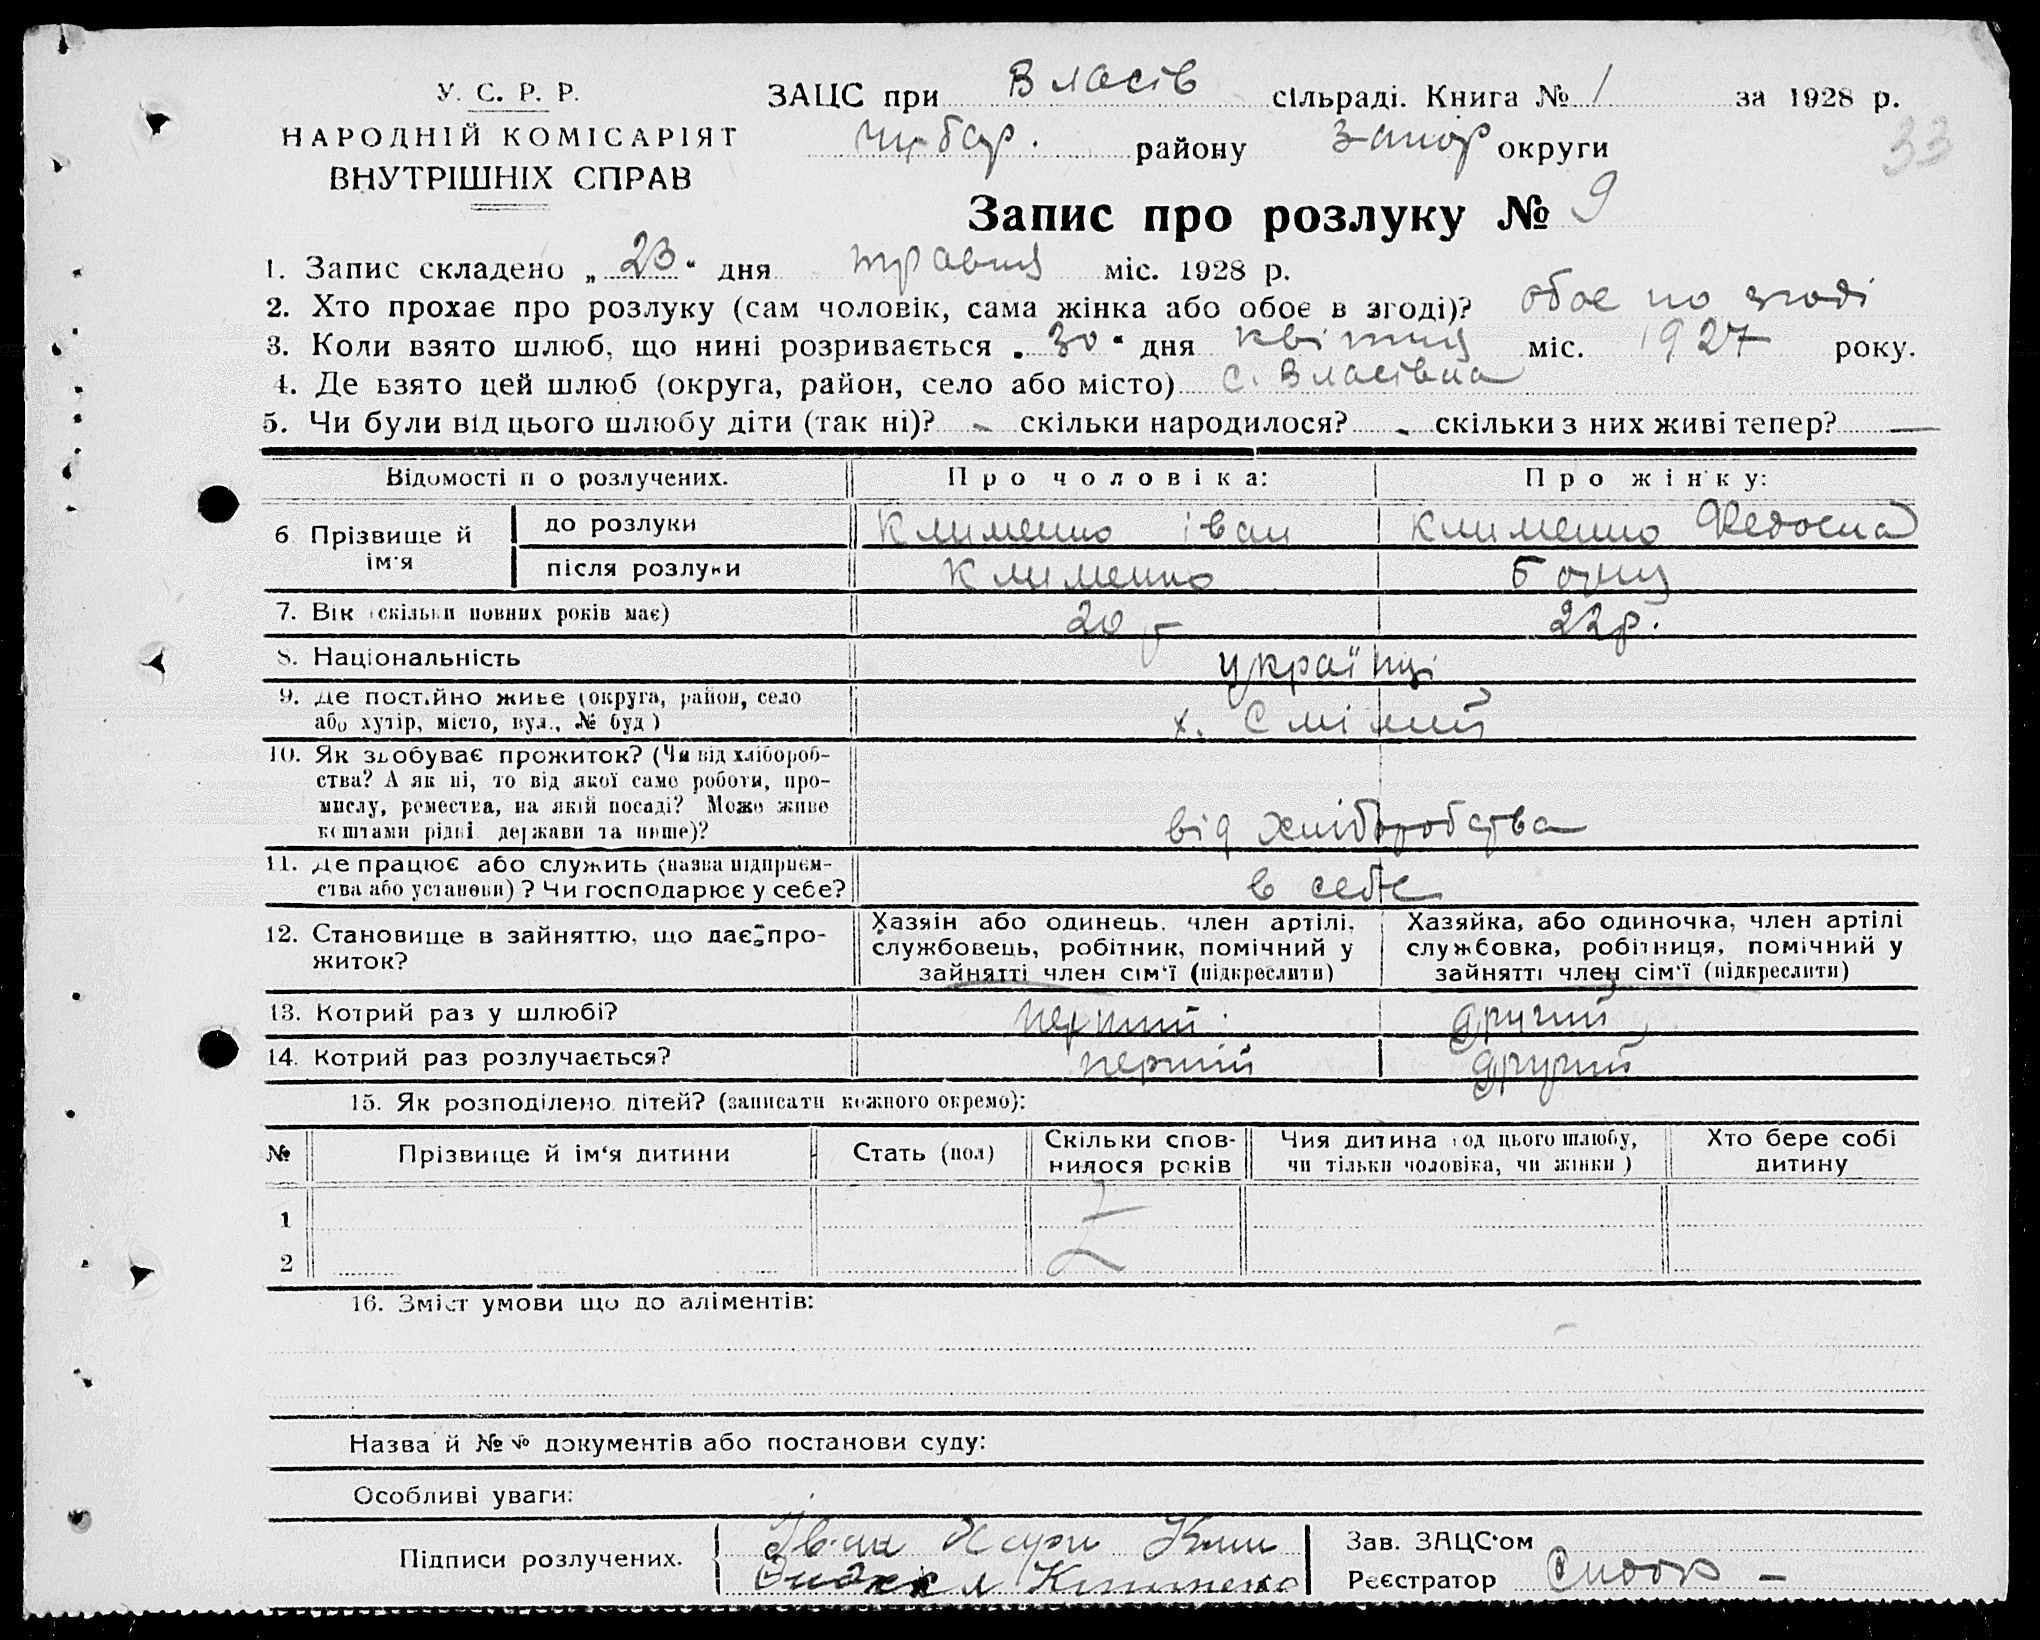 У. С. Р. Р.
НАРОДНІЙ КОМІСАРІЯТ
ВНУТРІШНІХ СПРАВ
ЗАЦС при Власів сільраді. Книга № 1 за 1928 р.
Чубар. району Запор округи
33
Запис про розлуку № 9
1. Запис складено „ 23 “ дня травня міс. 1928 р.
2. Хто прохає про розлуку (сам чоловік, сама жінка або обоє в згоді)? обоє по згоді
3. Коли взято шлюб, що нині розривається „ 30 “ дня квітня міс. 1927 року.
4. Де взято цей шлюб (округа, район, село або місто) с. Власівка
5. Чи були від цього шлюбу діти (так ні)? - скільки народилося? - скільки з них живі тепер? —
Відомості п о розлучених. Про чоловіка: Про жінку:
6 Прізвище й ім'я до розлуки Клименко Іван Клименко Федосія
після розлуки Клименко
7. Вік (скільки повних років має) 20 р 22р.
8. Національність українці
9. Де постійно живе (округа, район, село
або хутір, місто, вул., № буд) х. Смілий
10. Як здобуває прожиток? (Чи від хлібороб-
ства? А як ні, то від якої саме роботи, про-
мислу, ремества, на якій посаді? Може живе
коштами рідні держави та инше)? від хліборобства
11. Де працює або служить (назва підприєм-
ства або установи)? Чи господарює у себе? в себе
12. Становище в зайняттю, що дає про-
житок?
Хазяїн або одинець, член артілі,
службовець, робітник, помічний у
зайнятті член сім'ї (підкреслити)
Хазяйка, або одиночка, член артілі
службовка, робітниця, помічний у
зайнятті член сім'ї (підкреслити)
13. Котрий раз у шлюбі? перший другий
14. Котрий раз розлучається? першій другий
15. Як розподілено дітей? (записати кожного окремо):
№ Прізвище й ім'я дитини Стать (пол) Скільки спов-
нилося років Чия дитина (од цього шлюбу,
чи тільки чоловіка, чи жінки) Хто бере собі
дитину
1
2
16. Зміст умови що до аліментів:
Назва й №№ документів або постанови суду:
Особливі уваги:
Підписи розлучених. Іван Клим
Клименко
Зав. ЗАЦС'ом
Реєстратор